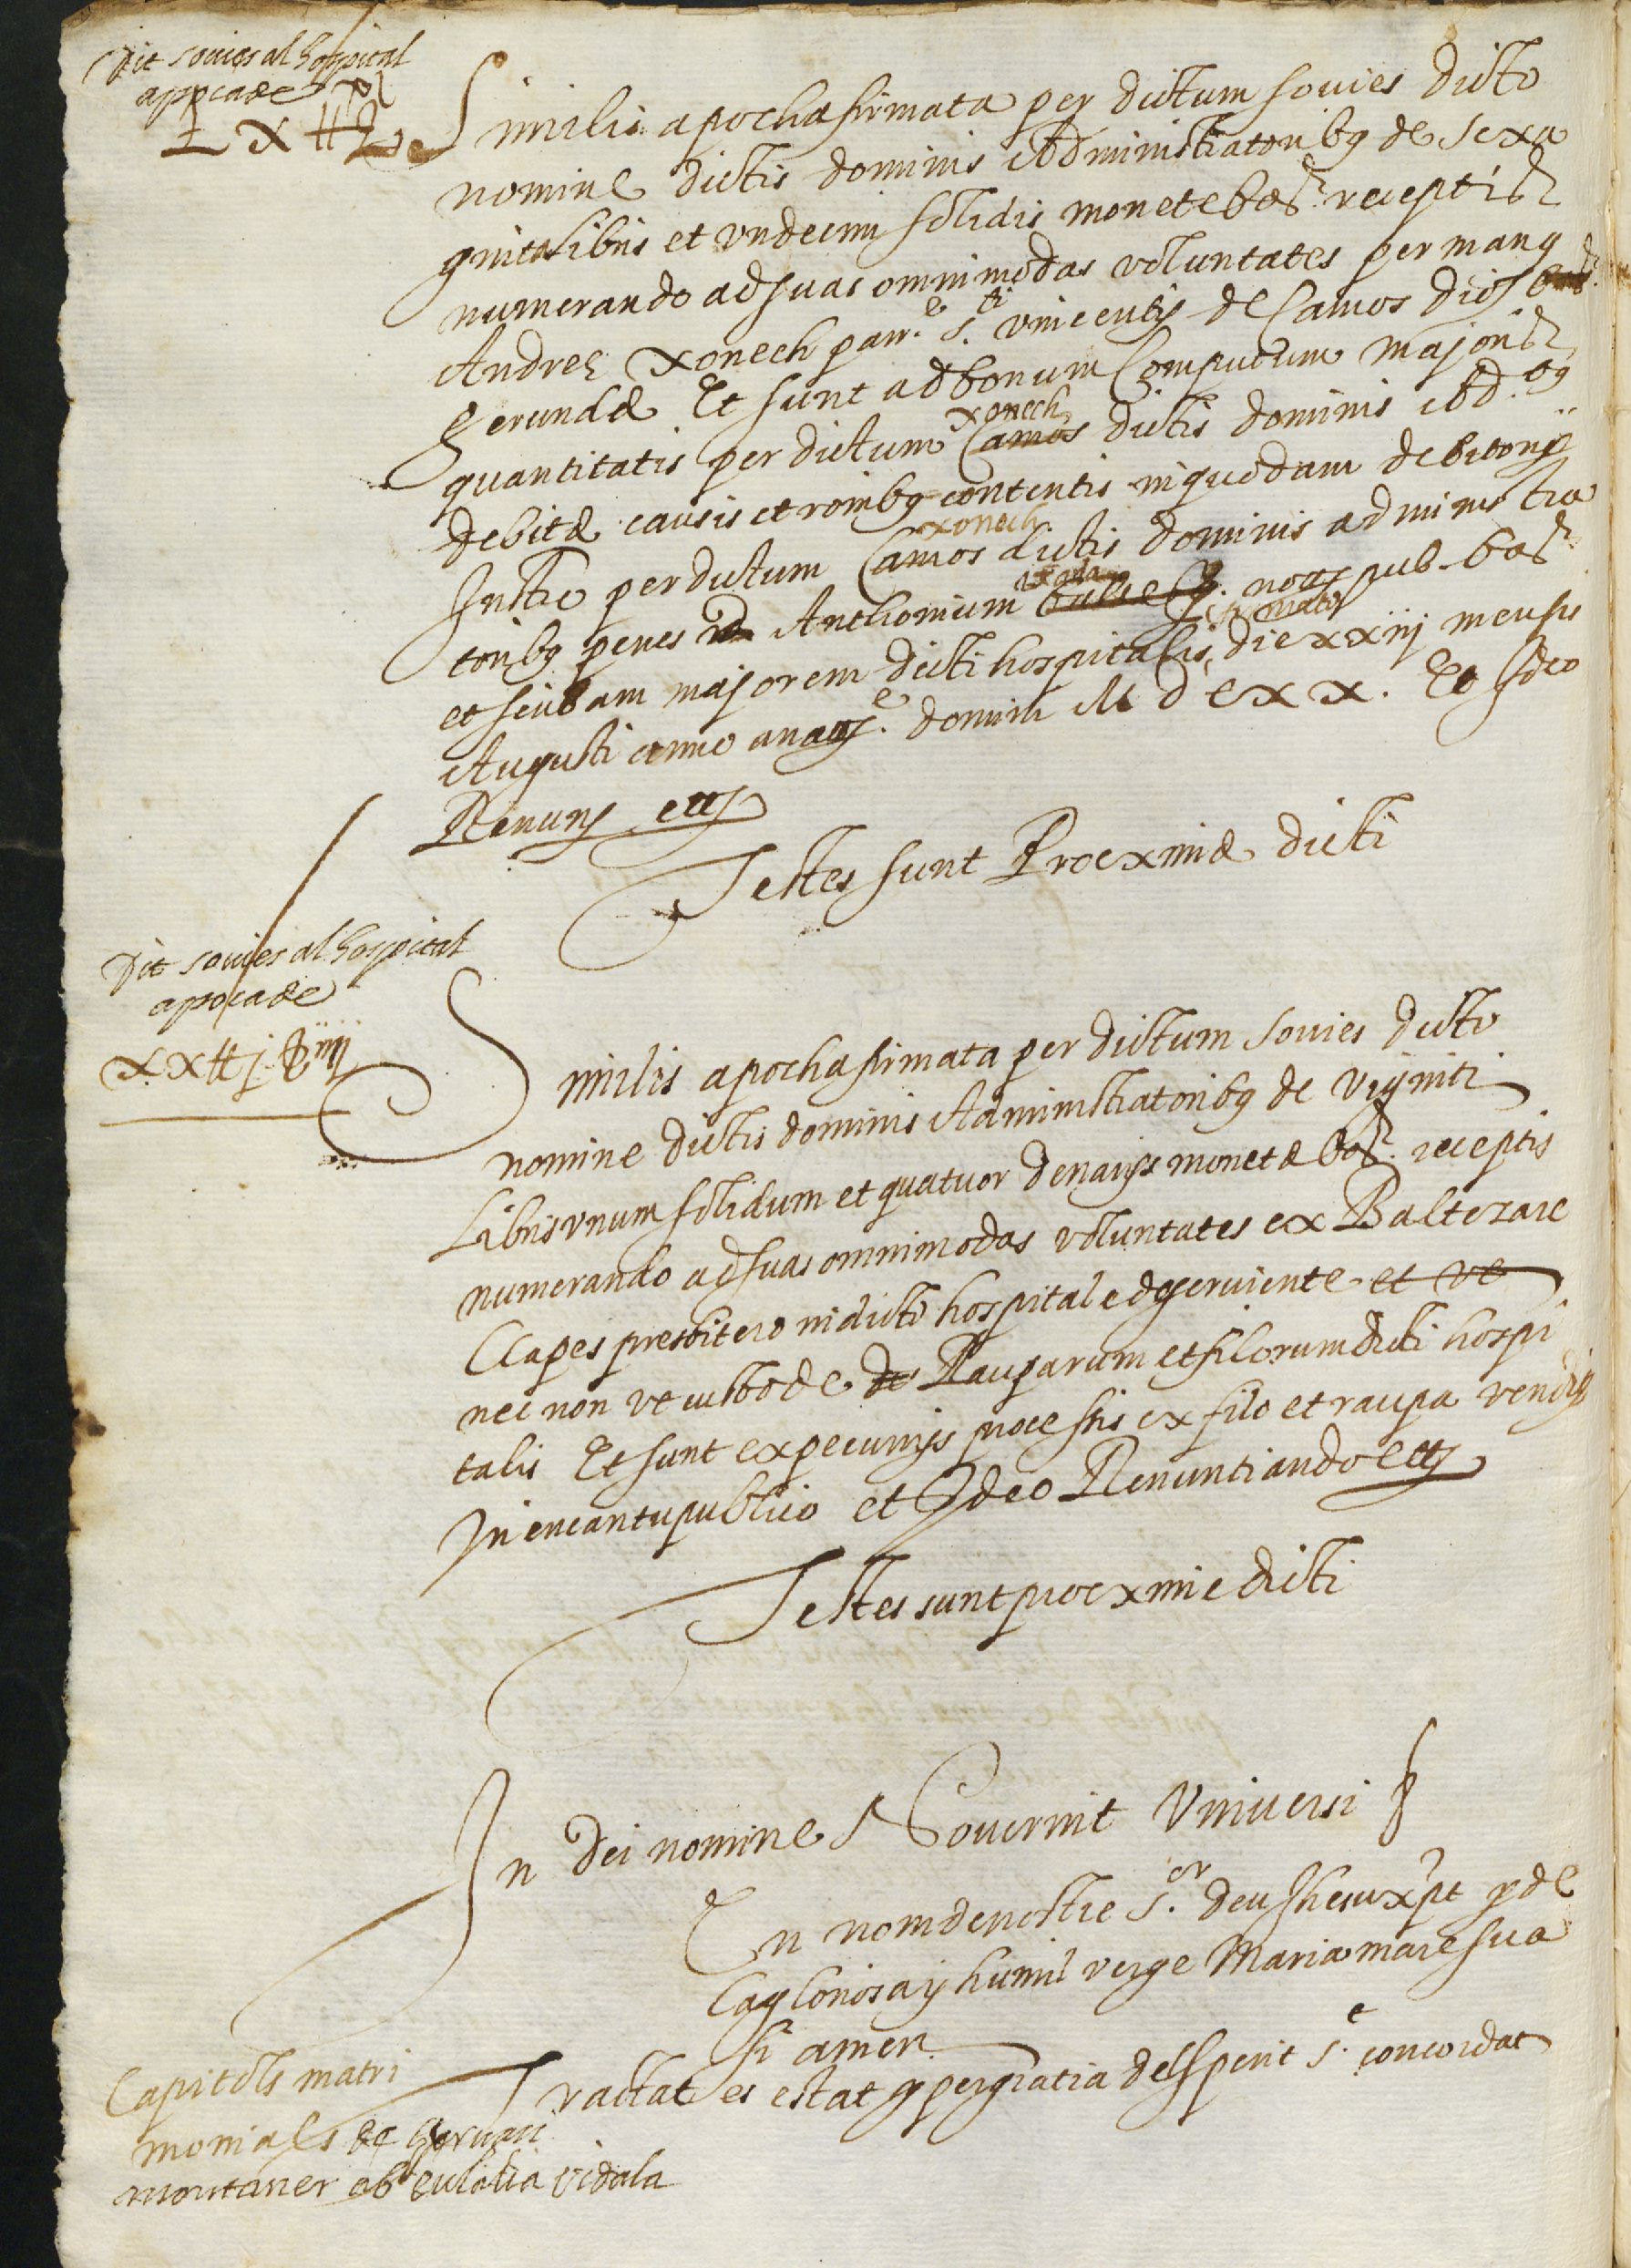 Dit sovies al hospital
apocade
Similis apocha firmata per dictum sovies dicto
nomine dictis dominis Administratoribq de sexa
ginta libris et undecim solidis monete bar. receptis
numerando ad suas omnimodas voluntates per manq
Andreę xonech par. e s. ti vincentij de Camos dioc
Gerundæ Et sunt ad bonum Computum majoris
quantitatis per dictum xonech Camos dictis dominis Ad. bq
debitæ causis et ronibq contentis in quodam debitorij
Instro per dictum xonech Camos dictis dominis administra
toribq penes Anthonium notm pub. bar.
et scribam majorem dicti hospitalis, die xxiiij mensis
Augusti anno a natte. domini M d c x x. Et Ideo
Renunj ettz
Testes sunt Proximæ dicti
Dit sovies al hospital
apocade
xx ℔ j. s iiij
Similis apocha firmata per dictum sovies dicto
nomine dictis dominis Administratoribq de viginti
Libris unum solidum et quatuor denarijs monetæ bar. receptis
numerando ad suas omnimodas voluntates ex Baltezare
Clapes presbitero in dicto hospitale deserviente et ve
nec non ut custode de Rauparum et filorum dicti hospi
talis Et sunt ex pecunijs processis ex filo et raupa vendis
In encantu publico et Ideo Renuntiando ettz
Testes sunt proxime dicti
In Dei nomine Noverint Universi
En nom de nostre S.or deu Jhesuxpt y de
la gloriosa y humil verge Maria mare sua
si amen
Capitols matri
monials de
montaner ab eulalia vidala
Tractat es estat y per gratia del sperit s.t concordat